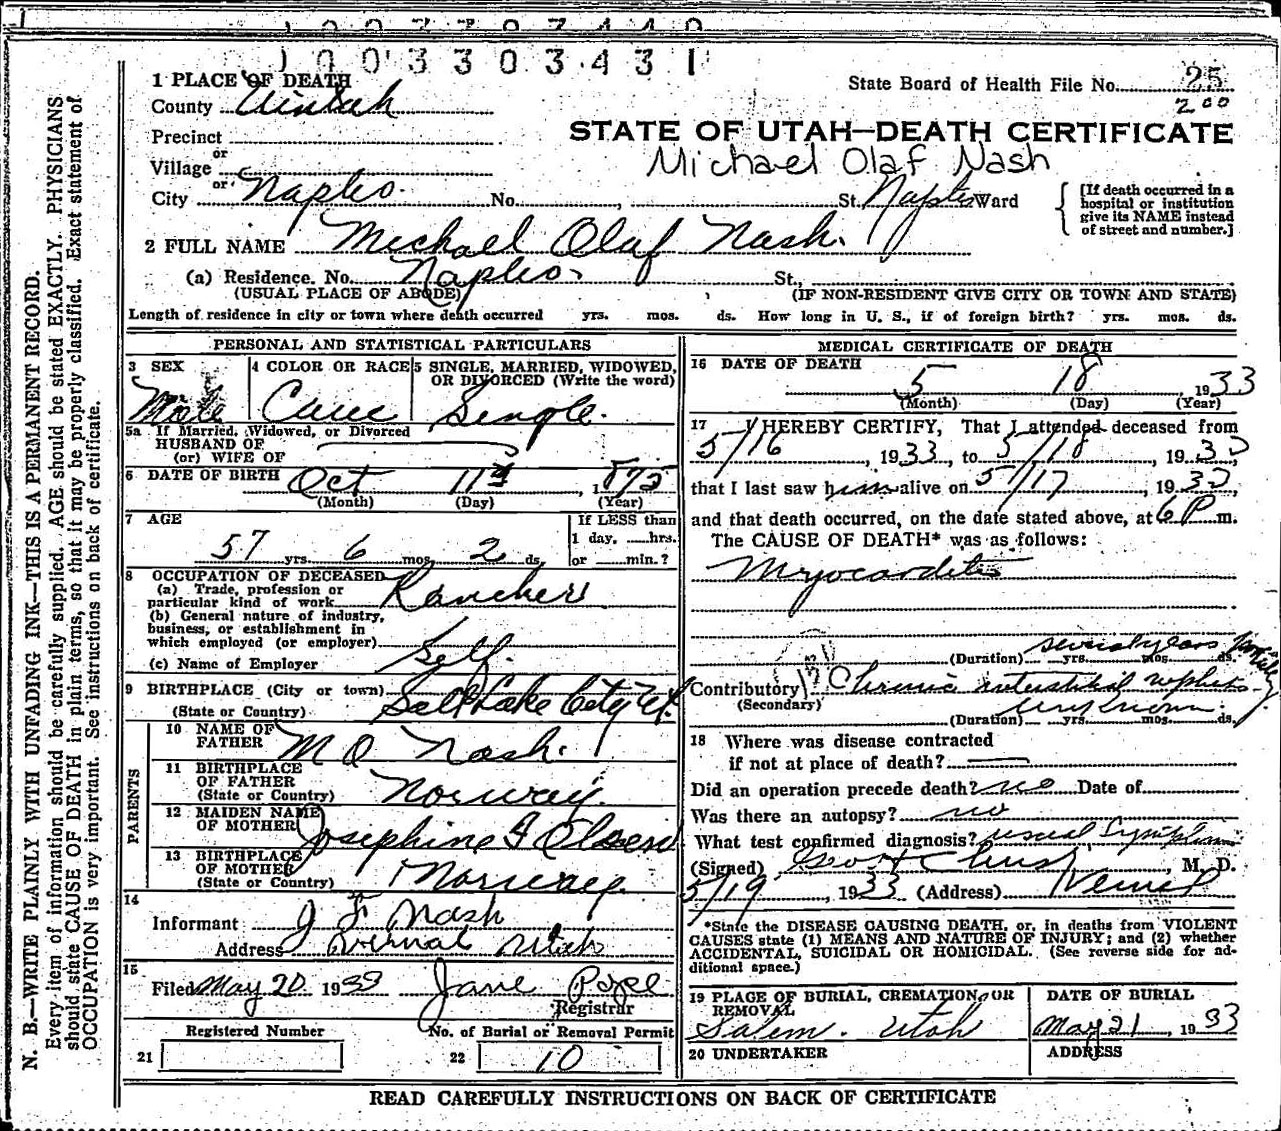 1003303431
1 PLACE OF DEATH
County Uintah
State Board of Health File No. 25
2 00
Precinct
or
Village
or
City Naples. No. , St. Naples Ward
STATE OF UTAH—DEATH CERTIFICATE
Michael Olaf Nash
{ [If death occurred in a
hospital or institution
give its NAME instead
of street and number.]
2 FULL NAME Michael Olaf Nash.
(a) Residence. No. Naples. St.,
(USUAL PLACE OF ABODE) (IF NON-RESIDENT GIVE CITY OR TOWN AND STATE)
Length of residence in city or town where death occurred yrs. mos. ds. How long in U. S., if of foreign birth? yrs. mos. ds.
PERSONAL AND STATISTICAL PARTICULARS
3 SEX
Male
4 COLOR OR RACE
Cauc
5 SINGLE, MARRIED, WIDOWED,
OR DIVORCED (Write the word)
Single.
5a If Married, Widowed, or Divorced
HUSBAND OF
(or) WIFE OF
6 DATE OF BIRTH Oct 11 , 1875
(Month) (Day) (Year)
7 AGE
57 yrs. 6 mos. 2 ds.
If LESS than
1 day, hrs.
or min.?
8 OCCUPATION OF DECEASED
(a) Trade, profession or
particular kind of work Rancher
(b) General nature of industry,
business, or establishment in
which employed (or employer)
(c) Name of Employer Self.
9 BIRTHPLACE (City or town) Salt Lake City Ut.
(State or Country)
PARENTS
10 NAME OF
FATHER M O Nash.
11 BIRTHPLACE
OF FATHER
(State or Country) Norway.
12 MAIDEN NAME
OF MOTHER Josephine
13 BIRTHPLACE
OF MOTHER
(State or Country) Norway.
14
Informant J F Nash
Address Vernal Utah
15
Filed May 20 1933 Jane Pope
Registrar
Registered Number
21
No. of Burial or Removal Permit
22 10
MEDICAL CERTIFICATE OF DEATH
16 DATE OF DEATH
5 18 , 1933
(Month) (Day) (Year)
17 I HEREBY CERTIFY, That I attended deceased from
5/16 , 1933, to 5/18 , 1933,
that I last saw him alive on 5/17 , 1933,
and that death occurred, on the date stated above, at 6P m.
The CAUSE OF DEATH* was as follows:
Myocarditis
(Duration) several years yrs. mos. ds.
131
Contributory Chronic interstitial nephritis
(Secondary) unknown.
(Duration) yrs. mos. ds.
18 Where was disease contracted
if not at place of death?
Did an operation precede death? no Date of
Was there an autopsy? no
What test confirmed diagnosis? usual Symptoms
(Signed) Geo H Christy, M. D.
5/19, 1933 (Address) Vernal
*State the DISEASE CAUSING DEATH, or, in deaths from VIOLENT
CAUSES state (1) MEANS AND NATURE OF INJURY; and (2) whether
ACCIDENTAL, SUICIDAL OR HOMICIDAL. (See reverse side for ad-
ditional space.)
19 PLACE OF BURIAL, CREMATION, OR
REMOVAL
Salem. Utah
DATE OF BURIAL
May 21, 1933
20 UNDERTAKER ADDRESS
READ CAREFULLY INSTRUCTIONS ON BACK OF CERTIFICATE
N. B.—WRITE PLAINLY WITH UNFADING INK—THIS IS A PERMANENT RECORD.
Every item of information should be carefully supplied. AGE should be stated EXACTLY. PHYSICIANS
should state CAUSE OF DEATH in plain terms, so that it may be properly classified. Exact statement of
OCCUPATION is very important. See instructions on back of certificate.